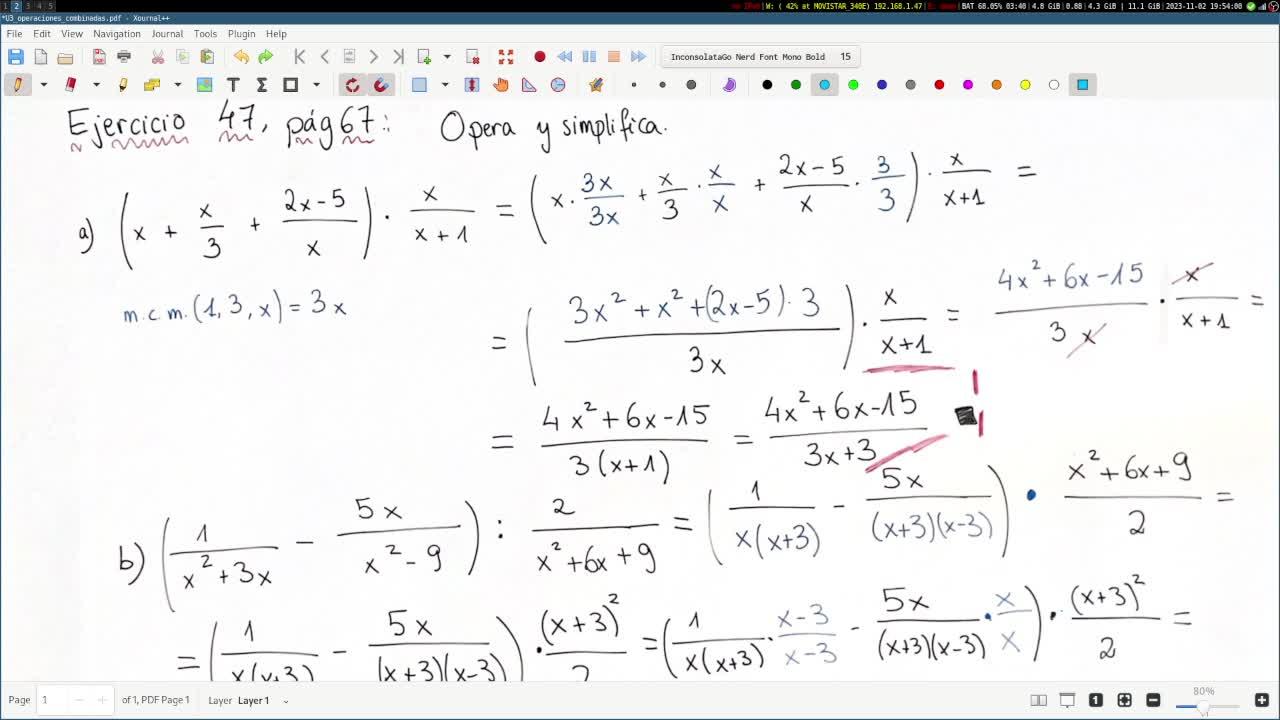 1 2 3 4 5 no IPv6|W: ( 42% at MOVISTAR_340E) 192.168.1.47|E: down|BAT 68.05% 03:40|4.8 GiB|0.88|4.3 GiB | 11.1 GiB|2023-11-02 19:54:00
*U3_operaciones_combinadas.pdf - Xournal++
File Edit View Navigation Journal Tools Plugin Help
InconsolataGo Nerd Font Mono Bold 15
Ejercicio 47, pág 67: Opera y simplifica.
a) (x + x/3 + (2x-5)/x) · x/(x+1) = (x · 3x/3x + x/3 · x/x + (2x-5)/x · 3/3) · x/(x+1) =
m.c.m. (1, 3, x) = 3x
= ((3x² + x² + (2x-5)·3)/3x) · x/(x+1) = (4x² + 6x - 15)/(3x) · x/(x+1) =
= (4x² + 6x - 15)/(3(x+1)) = (4x² + 6x - 15)/(3x+3)
b) (1/(x²+3x) - 5x/(x²-9)) : 2/(x²+6x+9) = (1/(x(x+3)) - 5x/((x+3)(x-3))) · (x²+6x+9)/2 =
= (1/(x(x+3)) - 5x/((x+3)(x-3))) · (x+3)²/2 = (1/(x(x+3)) · (x-3)/(x-3) - 5x/((x+3)(x-3)) · x/x) · (x+3)²/2 =
Page 1 of 1, PDF Page 1 Layer Layer 1 80%